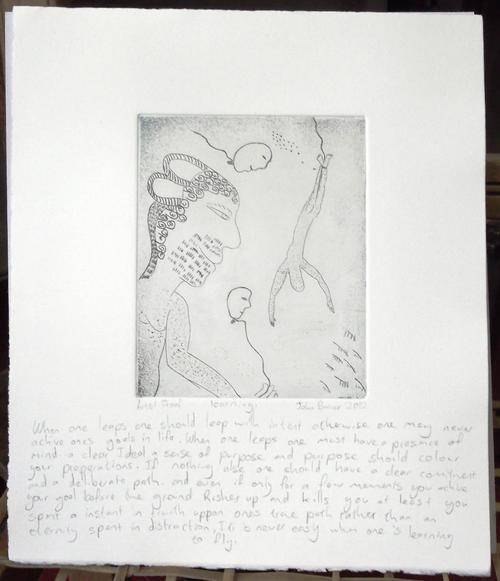 Artist Proof learning. John 2012
When one leaps one should leap with intent otherwise one may never
achive ones goals in life. When one leaps one must have a presence of
mind a clear Ideal a sense of purpose and purpose should colour
your preperations. If nothing else one should have a clear comitment
and a deliberate path. and even if only for a few moments you achive
your goal before the ground Rishes up and kills you at least you
spent a instant in truth uppon ones true path rather than an
eternity spent in distraction, It is never easy when one is learning
to fly.